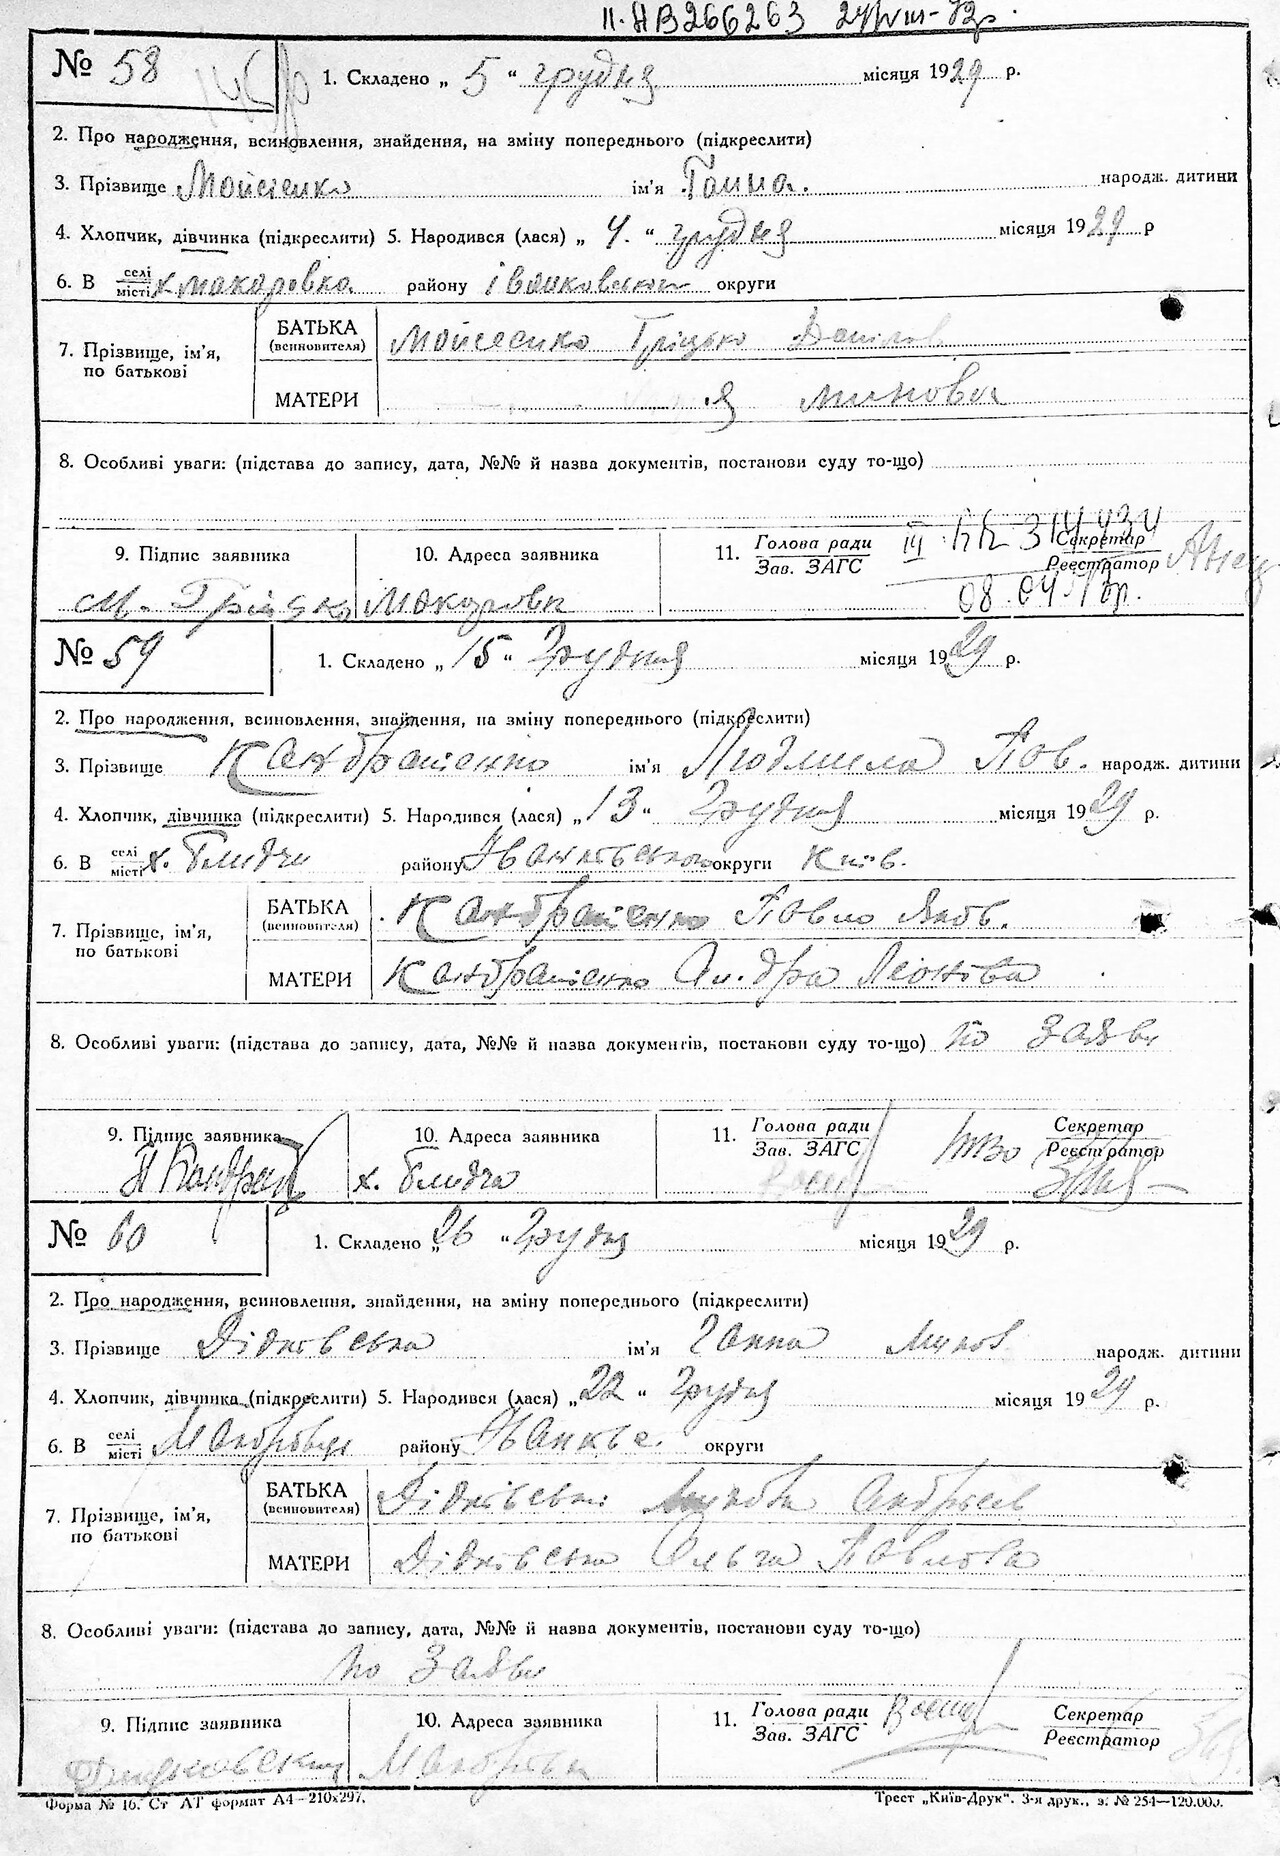 II-НВ 266263 24/VIII-72р.
№ 58
1. Складено „ 5 “ грудня місяця 1929 р.
2. Про народження, всиновлення, знайдення, на зміну попереднього (підкреслити)
3. Прізвище Мойсіенко ім'я Ганна. народж. дитини
4. Хлопчик, дівчинка (підкреслити) 5. Народився (лася) „ 4. “ грудня місяця 1929 р
6. В селі/місті х макаровка району Іванковськом округи
7. Прізвище, ім'я, по батькові
БАТЬКА (всиновителя) Мойсеенко Гріцько Данілов
МАТЕРИ миновна
8. Особливі уваги: (підстава до запису, дата, №№ й назва документів, постанови суду то-що)
9. Підпис заявника 10. Адреса заявника 11. Голова ради/Зав. ЗАГС Секретар/Реєстратор
III 314434
08.04
М. Гріцько Макаровка
№ 59
1. Складено „ 15 “ Грудня місяця 1929 р.
2. Про народження, всиновлення, знайдення, на зміну попереднього (підкреслити)
3. Прізвище Кандратенко ім'я Людмила Пав. народж. дитини
4. Хлопчик, дівчинка (підкреслити) 5. Народився (лася) „ 13 “ Грудня місяця 1929 р.
6. В селі/місті х. Блидча району Іванківського округи Київ.
7. Прізвище, ім'я, по батькові
БАТЬКА (всиновителя) Кандратенко Павло Яков.
МАТЕРИ Кандратенко Леонова
8. Особливі уваги: (підстава до запису, дата, №№ й назва документів, постанови суду то-що) по заяви
9. Підпис заявника 10. Адреса заявника 11. Голова ради/Зав. ЗАГС Секретар/Реєстратор
П Кандрат х. Блидча
№ 60
1. Складено „ 26 “ Грудня місяця 1929 р.
2. Про народження, всиновлення, знайдення, на зміну попереднього (підкреслити)
3. Прізвище Дідківська ім'я Ганна народж. дитини
4. Хлопчик, дівчинка (підкреслити) 5. Народився (лася) „ 22 “ Грудня місяця 1929 р.
6. В селі/місті району Іванків. округи
7. Прізвище, ім'я, по батькові
БАТЬКА (всиновителя) Дідківський Андріев
МАТЕРИ Дідківська Ольга Павлова
8. Особливі уваги: (підстава до запису, дата, №№ й назва документів, постанови суду то-що)
по заяви
9. Підпис заявника 10. Адреса заявника 11. Голова ради/Зав. ЗАГС Секретар/Реєстратор
Форма № 16. Ст АТ формат А4—210х297. Трест „Київ-Друк“. 3-я друк., з. № 254—120.000.